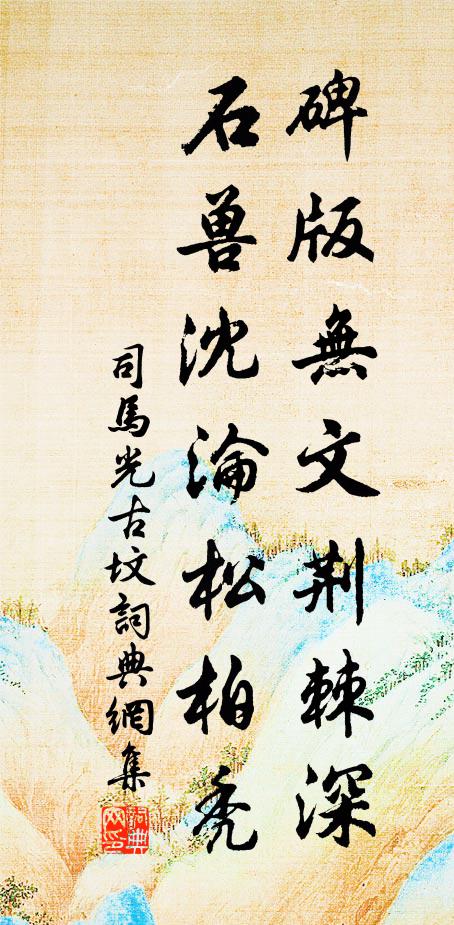 碑版無文荆棘深
石兽沈淪松柏秃
司馬光古坟詞典網集